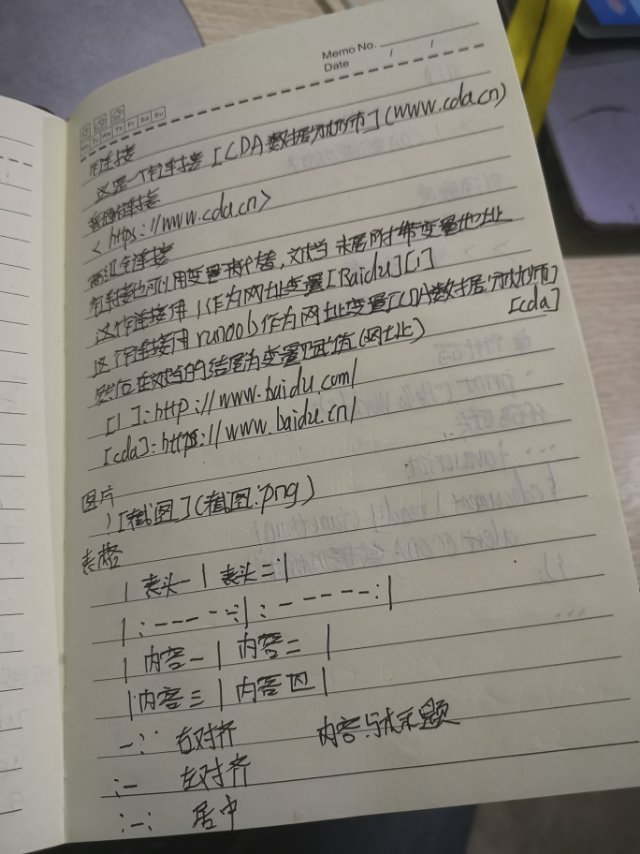 Memo No.
Date / /
Mo Tu We Th Fr Sa Su
有链接
这是一个有链接 [CDA数据分析师](www.cda.cn)
普通链接
<https://www.cda.cn>
高级链接
有链接也可以用变量来代替,文档末尾附带变量地址
这个链接用 1 作为网址变量[Baidu][1]
这个链接用 runoob作为网址变量[CDA数据分析师]
[cda]
然后在文档的结尾为变量赋值(网址)
[1]:http://www.baidu.com/
[cda]:https://www.baidu.cn/
图片
![截图](截图.png)
表格
| 表头一 | 表头二 |
|:----:|:----:|
| 内容一 | 内容二 |
| 内容三 | 内容四 |
-: 右对齐 内容与标题
:- 左对齐
:-: 居中